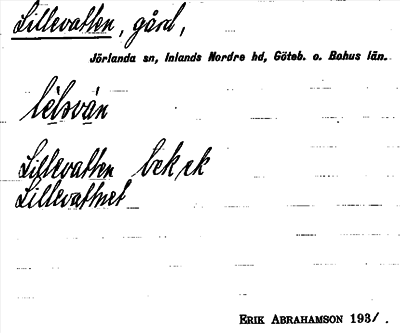 Lillevatten, gård,
Jörlanda sn, Inlands Nordre hd, Göteb. o. Bohus län.
Lillevatten bek ek
Lillevattnet
ERIK ABRAHAMSON 1931.